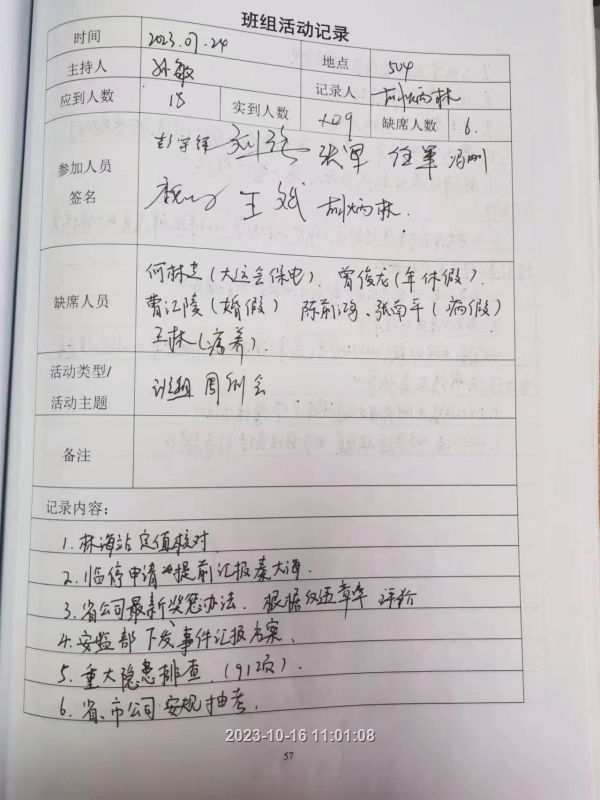 班组活动记录
时间 2023.07.24 地点 504
主持人 孙敏 记录人 胡炳林
应到人数 18 实到人数 9 缺席人数 6.
参加人员签名 彭宇锋 张军 任军 冯刚
王斌 胡炳林.
缺席人员 何林(大运会保电). 曾俊龙(年休假).
曹江陵(婚假) 陈前鸿、张南平(病假)
王林(疗养).
活动类型/活动主题 班组周例会
备注
记录内容:
1. 林海站定值核对.
2. 临停申请提前汇报秦大海.
3. 省公司最新奖惩办法. 根据仅违章率评价
4. 安监部下发事件汇报方案.
5. 重大隐患排查. (912项).
6. 省、市公司安规抽考.
2023-10-16 11:01:08
57